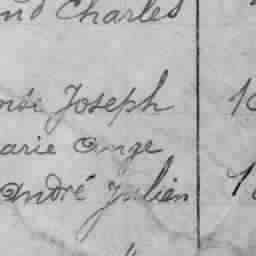 Charles
Joseph
arie Ange
André Julien